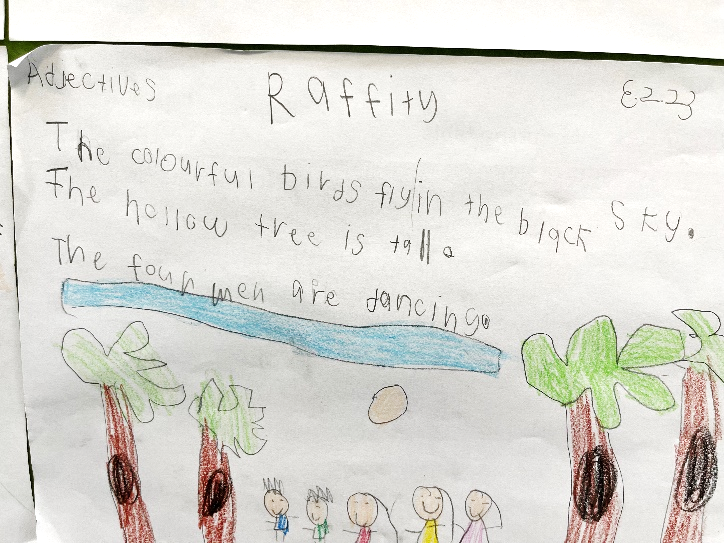 Adjectives
Raffity
E2.23
The colourful birds fly in the black sky.
The hollow tree is tall.
The four men are dancing.